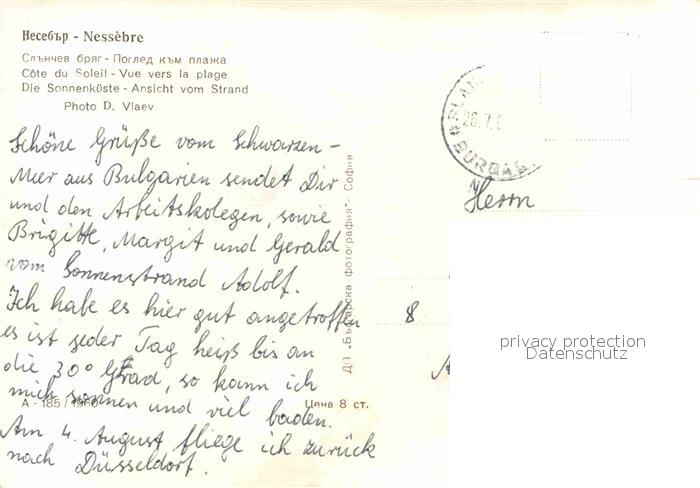 Несебър - Nessèbre
Слънчев бряг - Поглед към плажа
Côte du Soleil - Vue vers la plage
Die Sonnenküste - Ansicht vom Strand
Photo D. Vlaev
Schöne Grüße vom Schwarzen-
Meer aus Bulgarien sendet Dir
und den Arbeitskolegen, sowie
Brigitte, Margit und Gerald
vom Sonnenstrand Adolf.
Ich habe es hier gut angetroffen
es ist jeder Tag heiß bis an
die 30° Grad, so kann ich
mich sonnen und viel baden.
Am 4. August fliege ich zurück
nach Düsseldorf.
А - 185/1960
Цена 8 ст.
ДП „Българска фотография" - София
26.7.
BURGAS
Herrn
8
privacy protection
Datenschutz